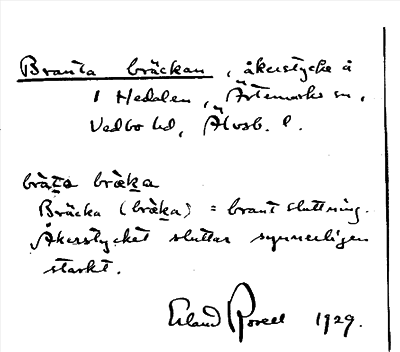 Branta bräckan, åkerstycke å
1 Hedalen, Ärtemarks sn,
Vedbo hd, Älvsb. l.
bràta bræka
Bräcka (bræka) = brant sluttning.
Åkerstycket sluttar synnerligen
starkt.
Erland Rosell 1929.